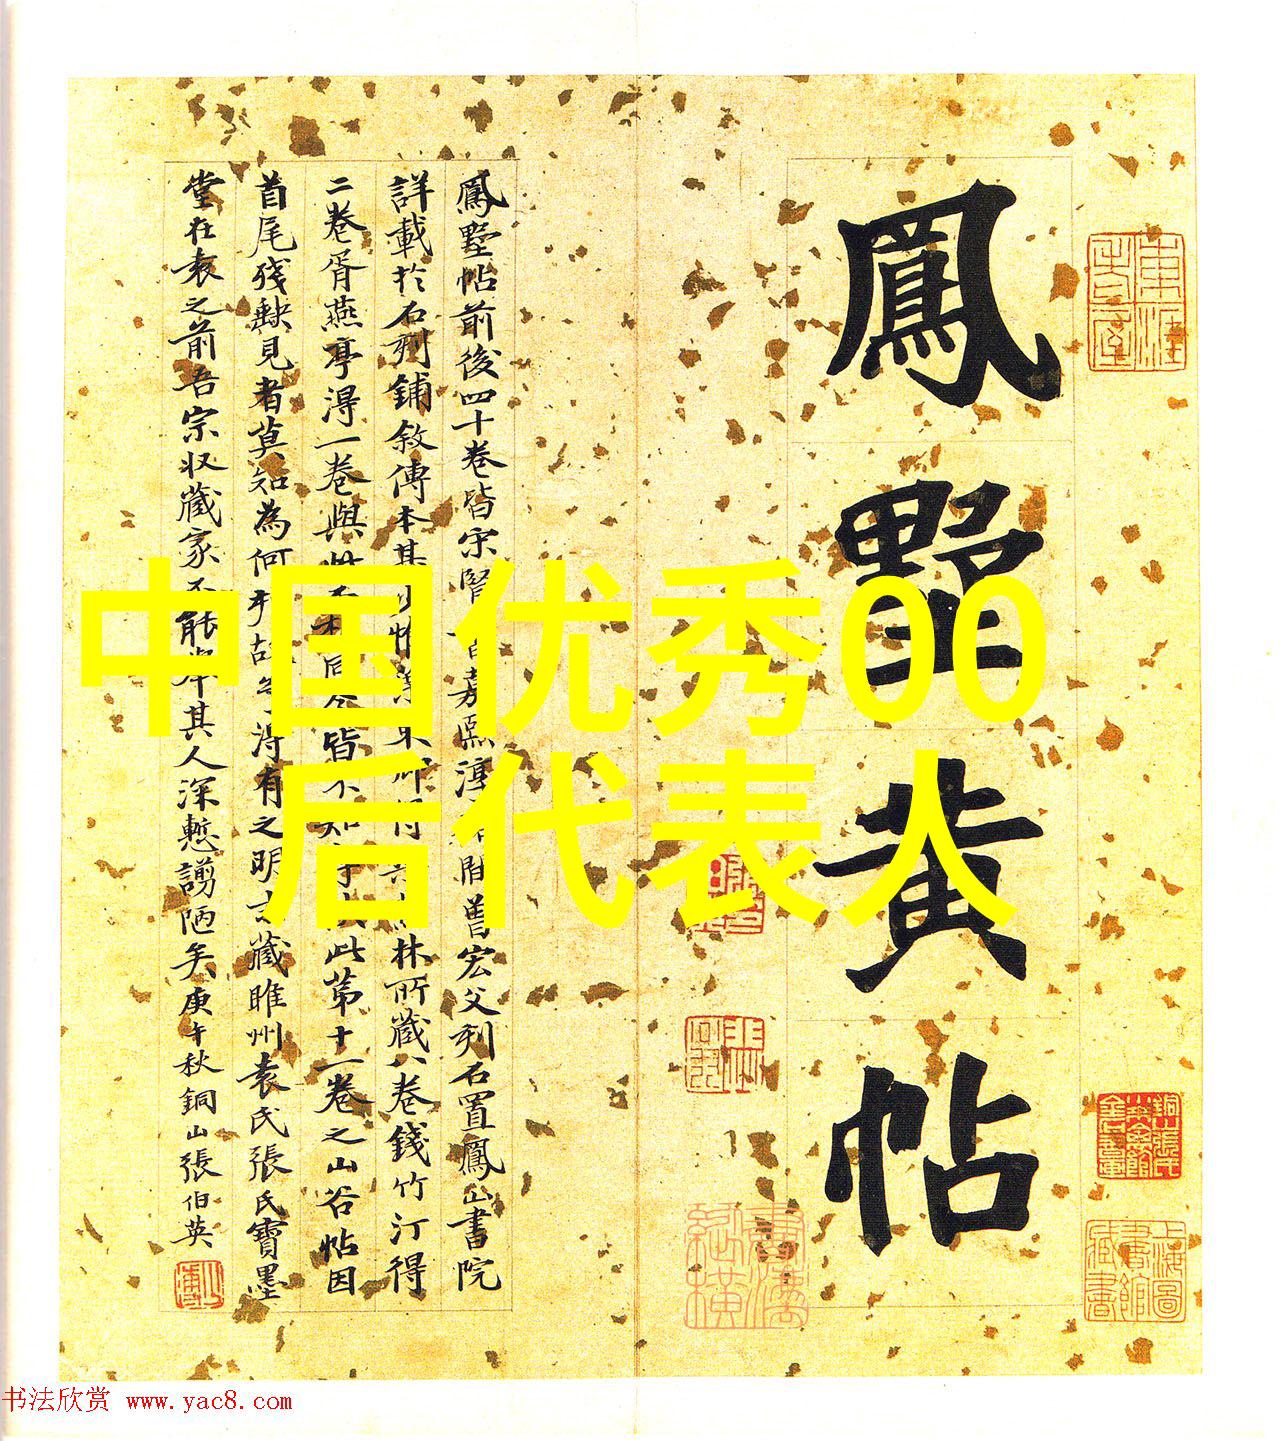 鳳墅黄帖
鳳墅帖前後四十卷皆宋賢 嘉熙淳 間曾宏父刻石置鳳山書院
詳載於石刻鋪敘傳本甚 林所藏八卷錢竹汀得
二卷胥燕亭得一卷與此 皆不知 此第十一卷之山谷帖因
首尾殘缺見者莫知為何 得有之明 藏睢州袁氏張氏寶墨
堂在袁之前吾宗收藏家不能舉其人深慙謭陋矣庚午秋銅山張伯英
中国优秀00
后代表人
上海圖書館藏書
书法欣赏 www.yac8.com